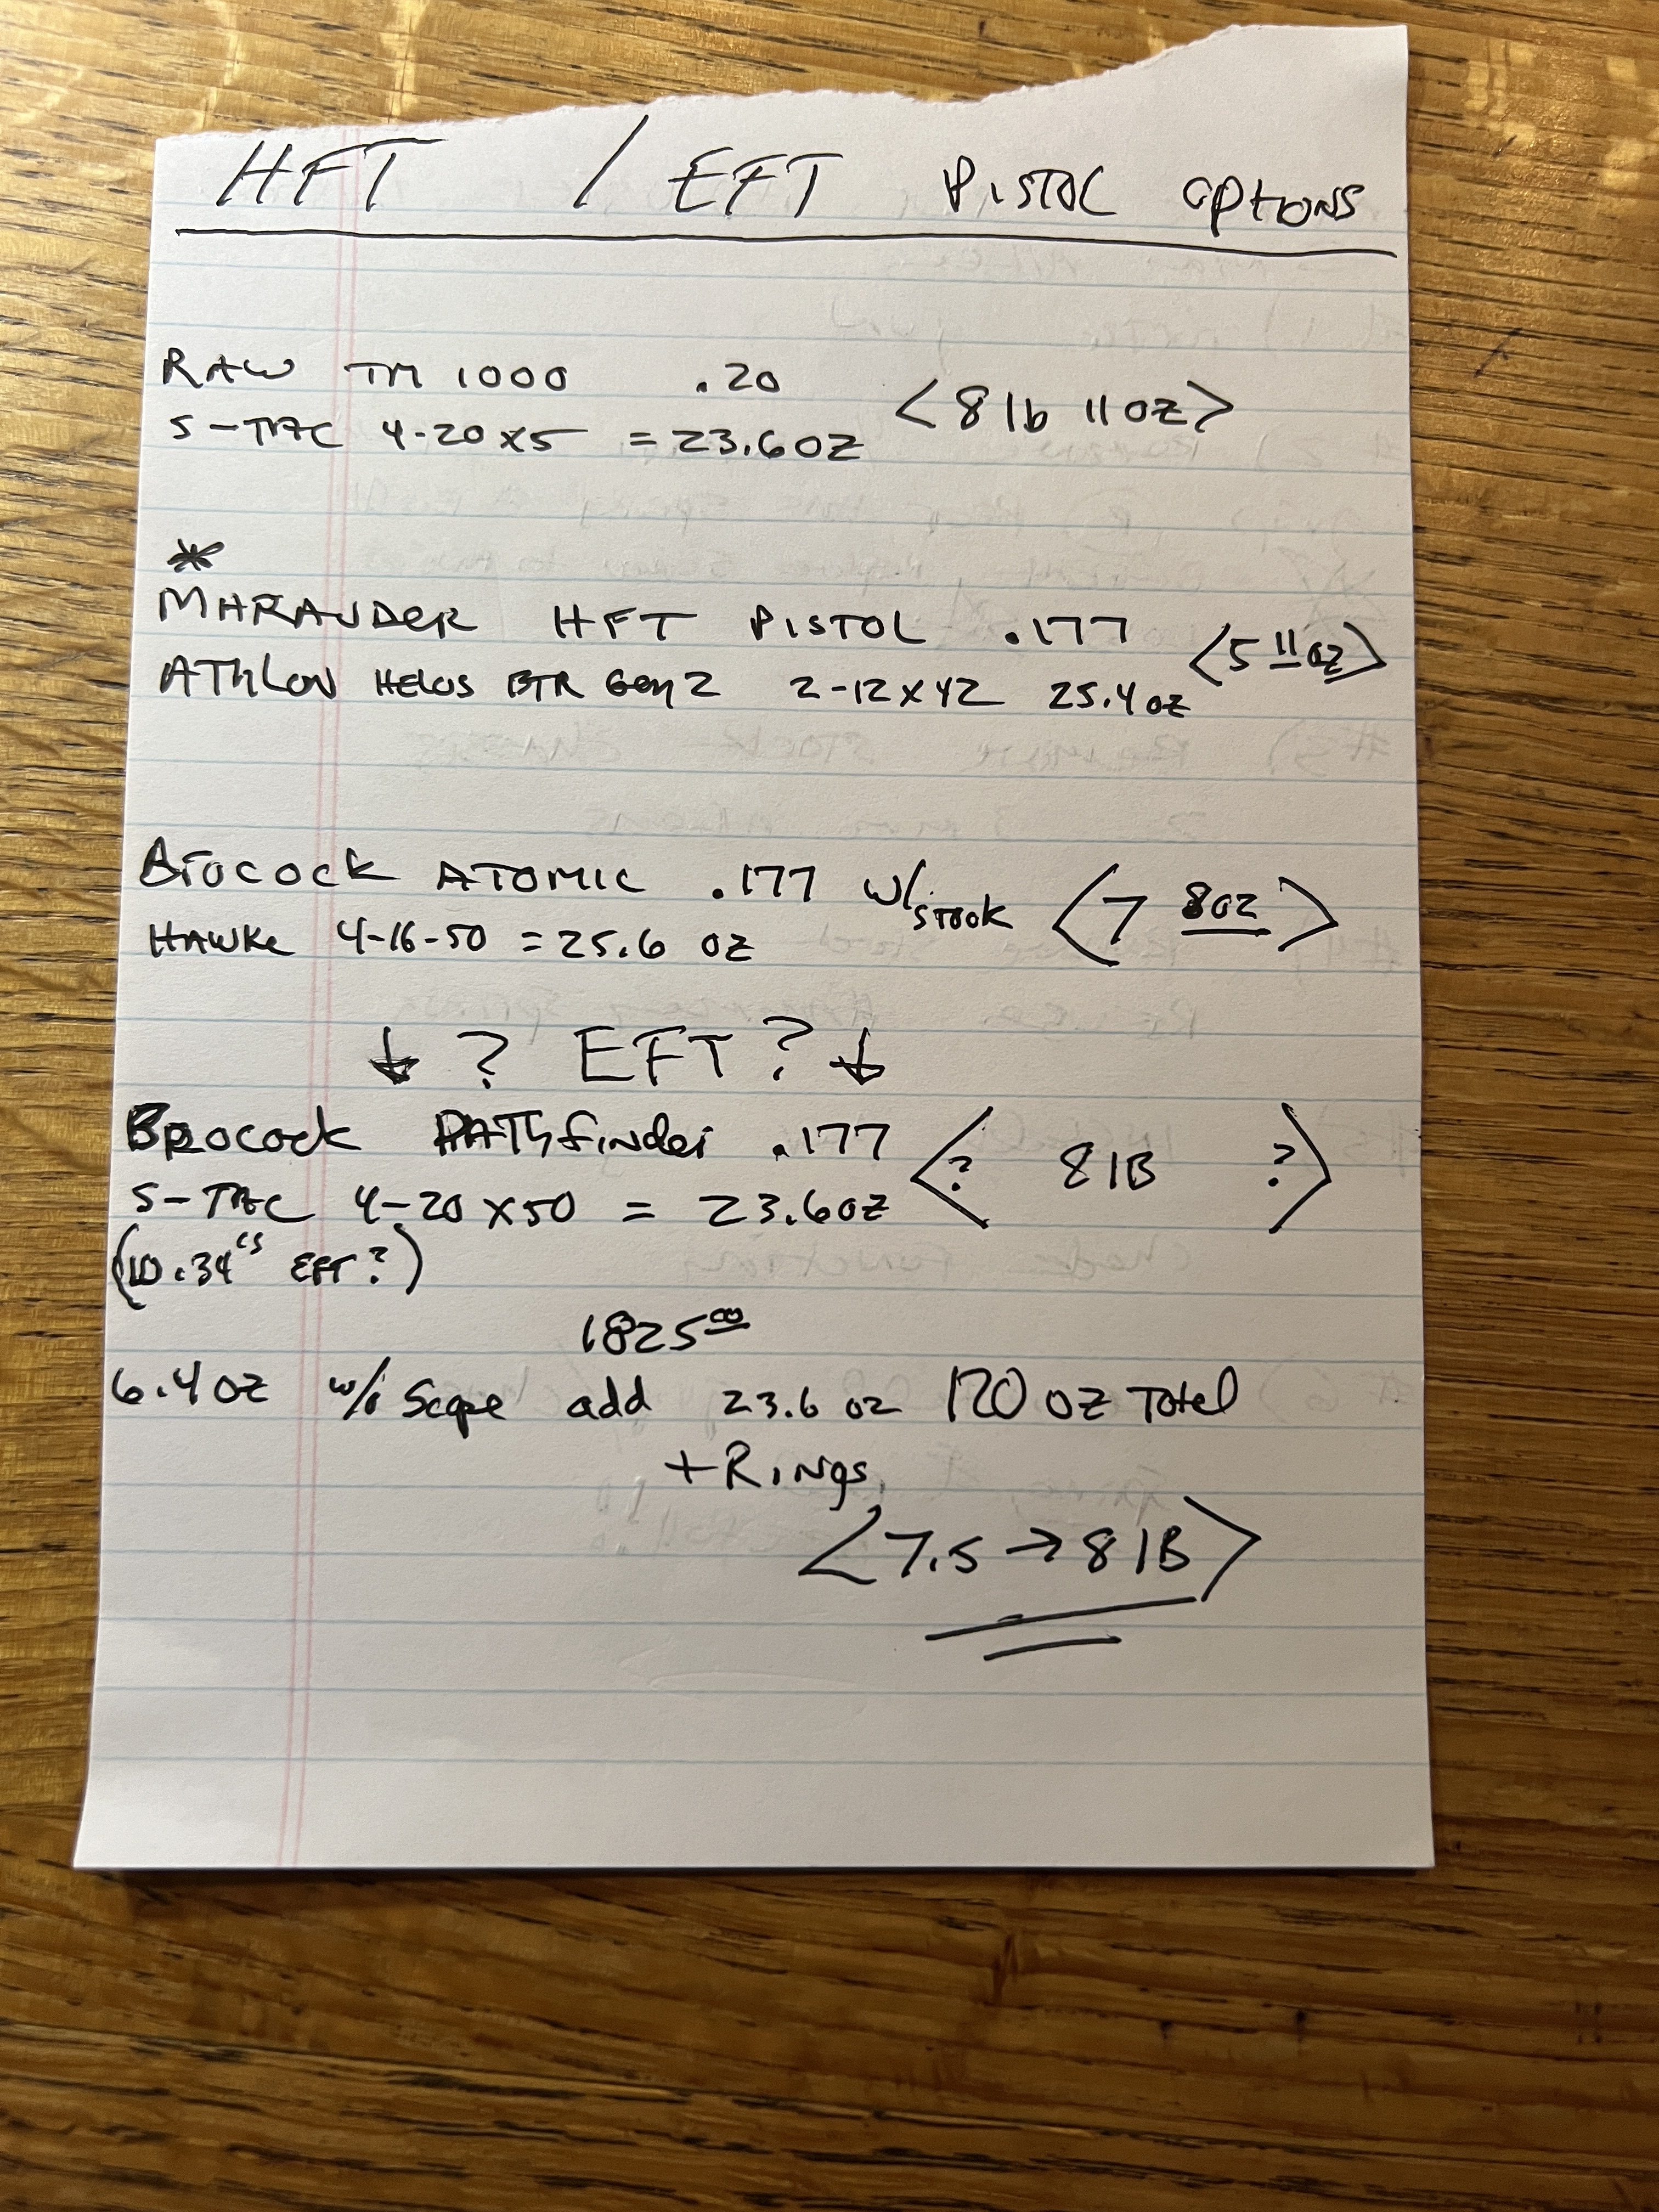 HFT / EFT PISTOL OPTIONS
RAW TM 1000 .20 <8 lb 11 oz>
S-TAC 4-20x5 = 23.6 OZ
*
MARAUDER HFT PISTOL .177 <5 11 oz>
ATHLON HELOS BTR Gen 2 2-12x42 25.4 oz
Brocock ATOMIC .177 w/ stock <7 8oz>
HAWKE 4-16-50 = 25.6 oz
↓ ? EFT ? ↓
Brocock PATHfinder .177 <? 8 lB ?>
S-TAC 4-20 x 50 = 23.6 oz
(10.34 EFT?)
1825.00
6.4 oz Scope add 23.6 oz 120 oz Total
+ Rings
<7.5 → 8 lB>